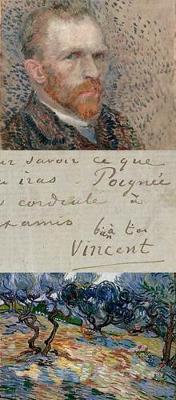 ur savoir ce que
u iras. Poignée
s cordiale à
t amis
bien à toi
Vincent